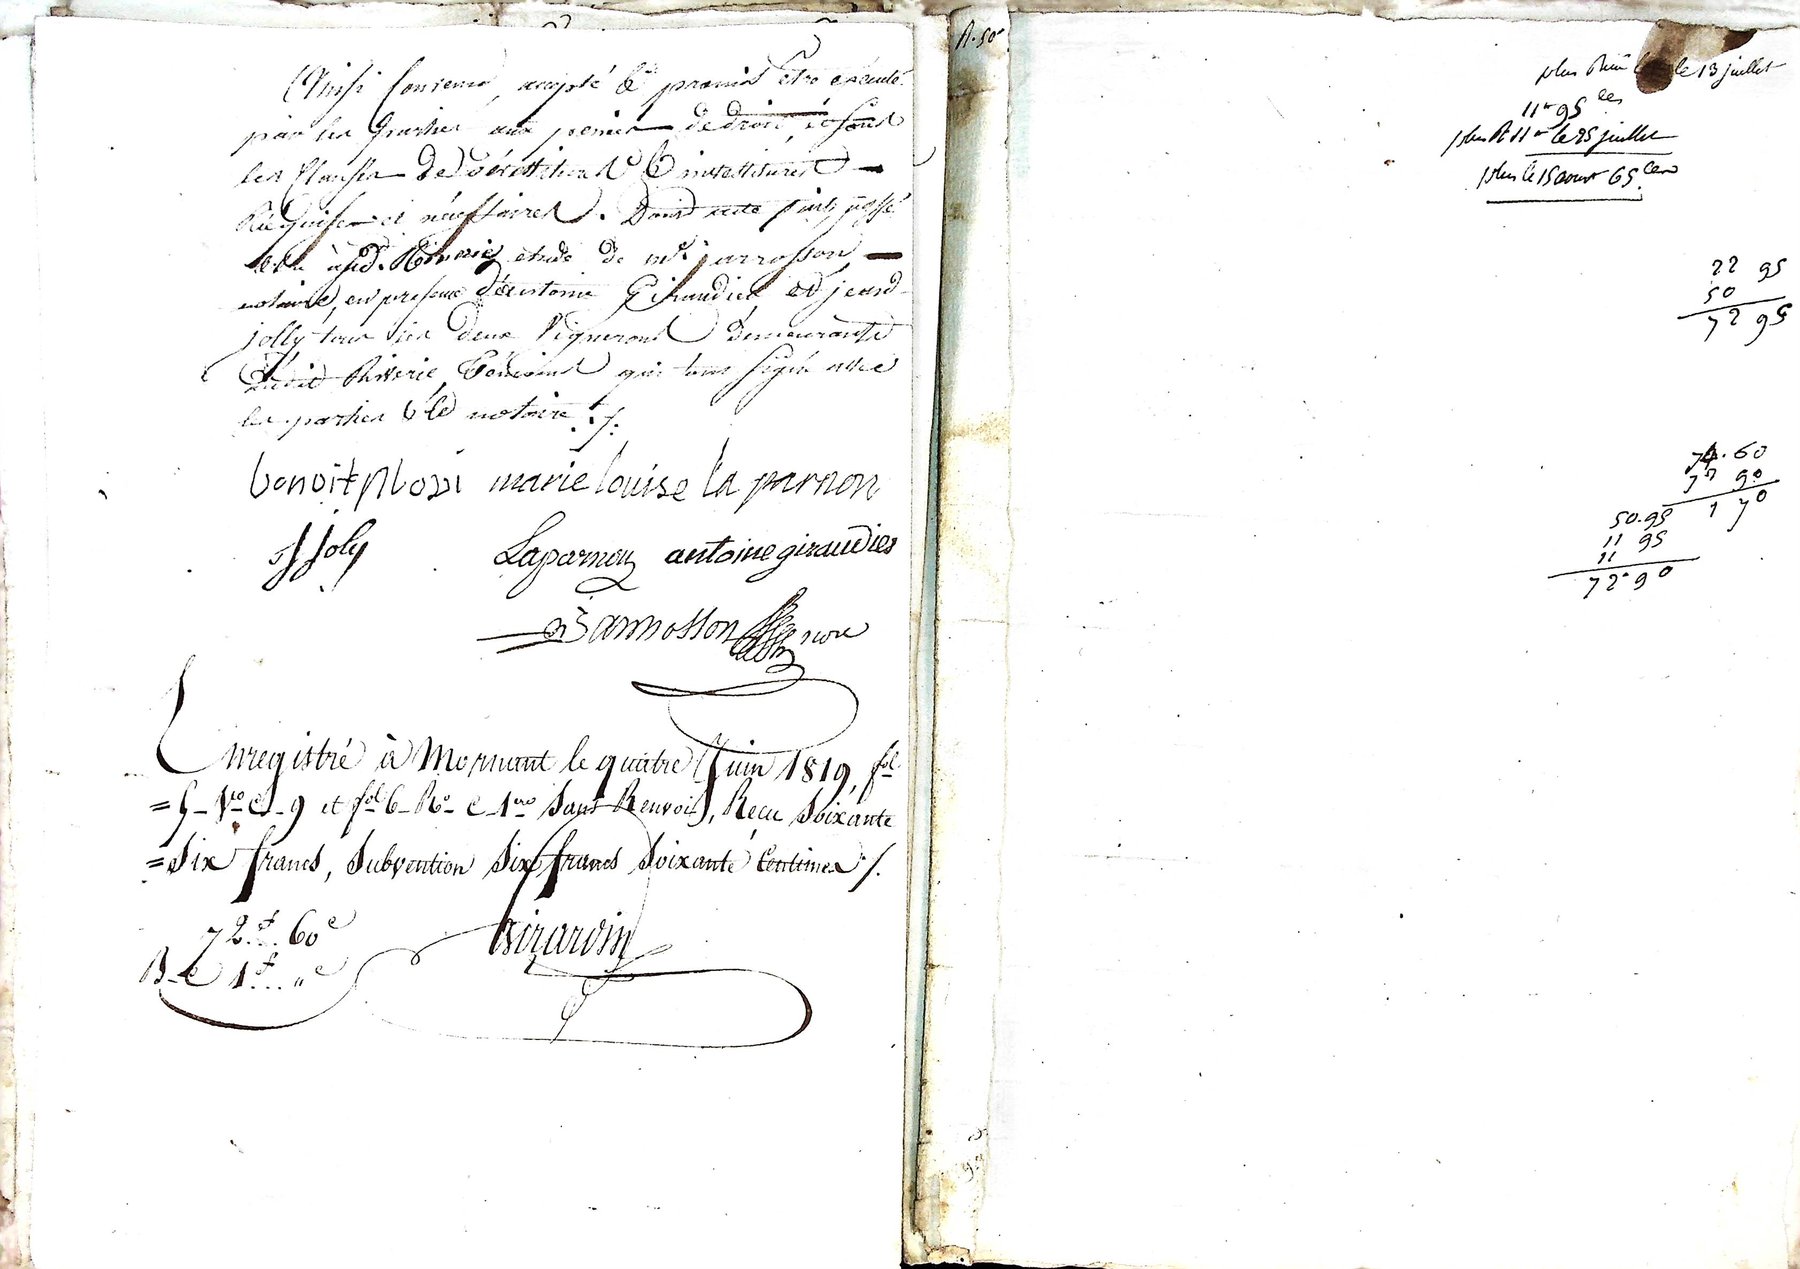 Ainsi convenu, accepté & promis être exécuté
par les parties aux peines de droit, et sous
les clauses de &
Requises et nécessaires. Dont acte fait, passé
étude de me jarrosson
notaire, en présence d'antoine Giraudier et jean
jolly tous les deux Vignerons Demeurants
témoins qui ont signé avec
les parties & le notaire ./.
benoit marie louise la parnon
J Joly Laparnon antoine giraudier
Jarrosson nore
Enregistré à Mornant le quatre Juin 1819, fol
= 5 Vo C. 9 et fol 6 Ro C 1ere Sans Renvois, Reçu Soixante
= Six francs, Subvention Six francs Soixante Centimes ./.
72.f 60c
B-e 1.f „c
Girardin
R. 50
plus le 13 juillet
11 95 ces
plus R 11 le 25 juillet
plus le 15 aout 65 ces
22 95
50
72 95
74.60
72 90
1 70
50.95
11 95
11
72.90